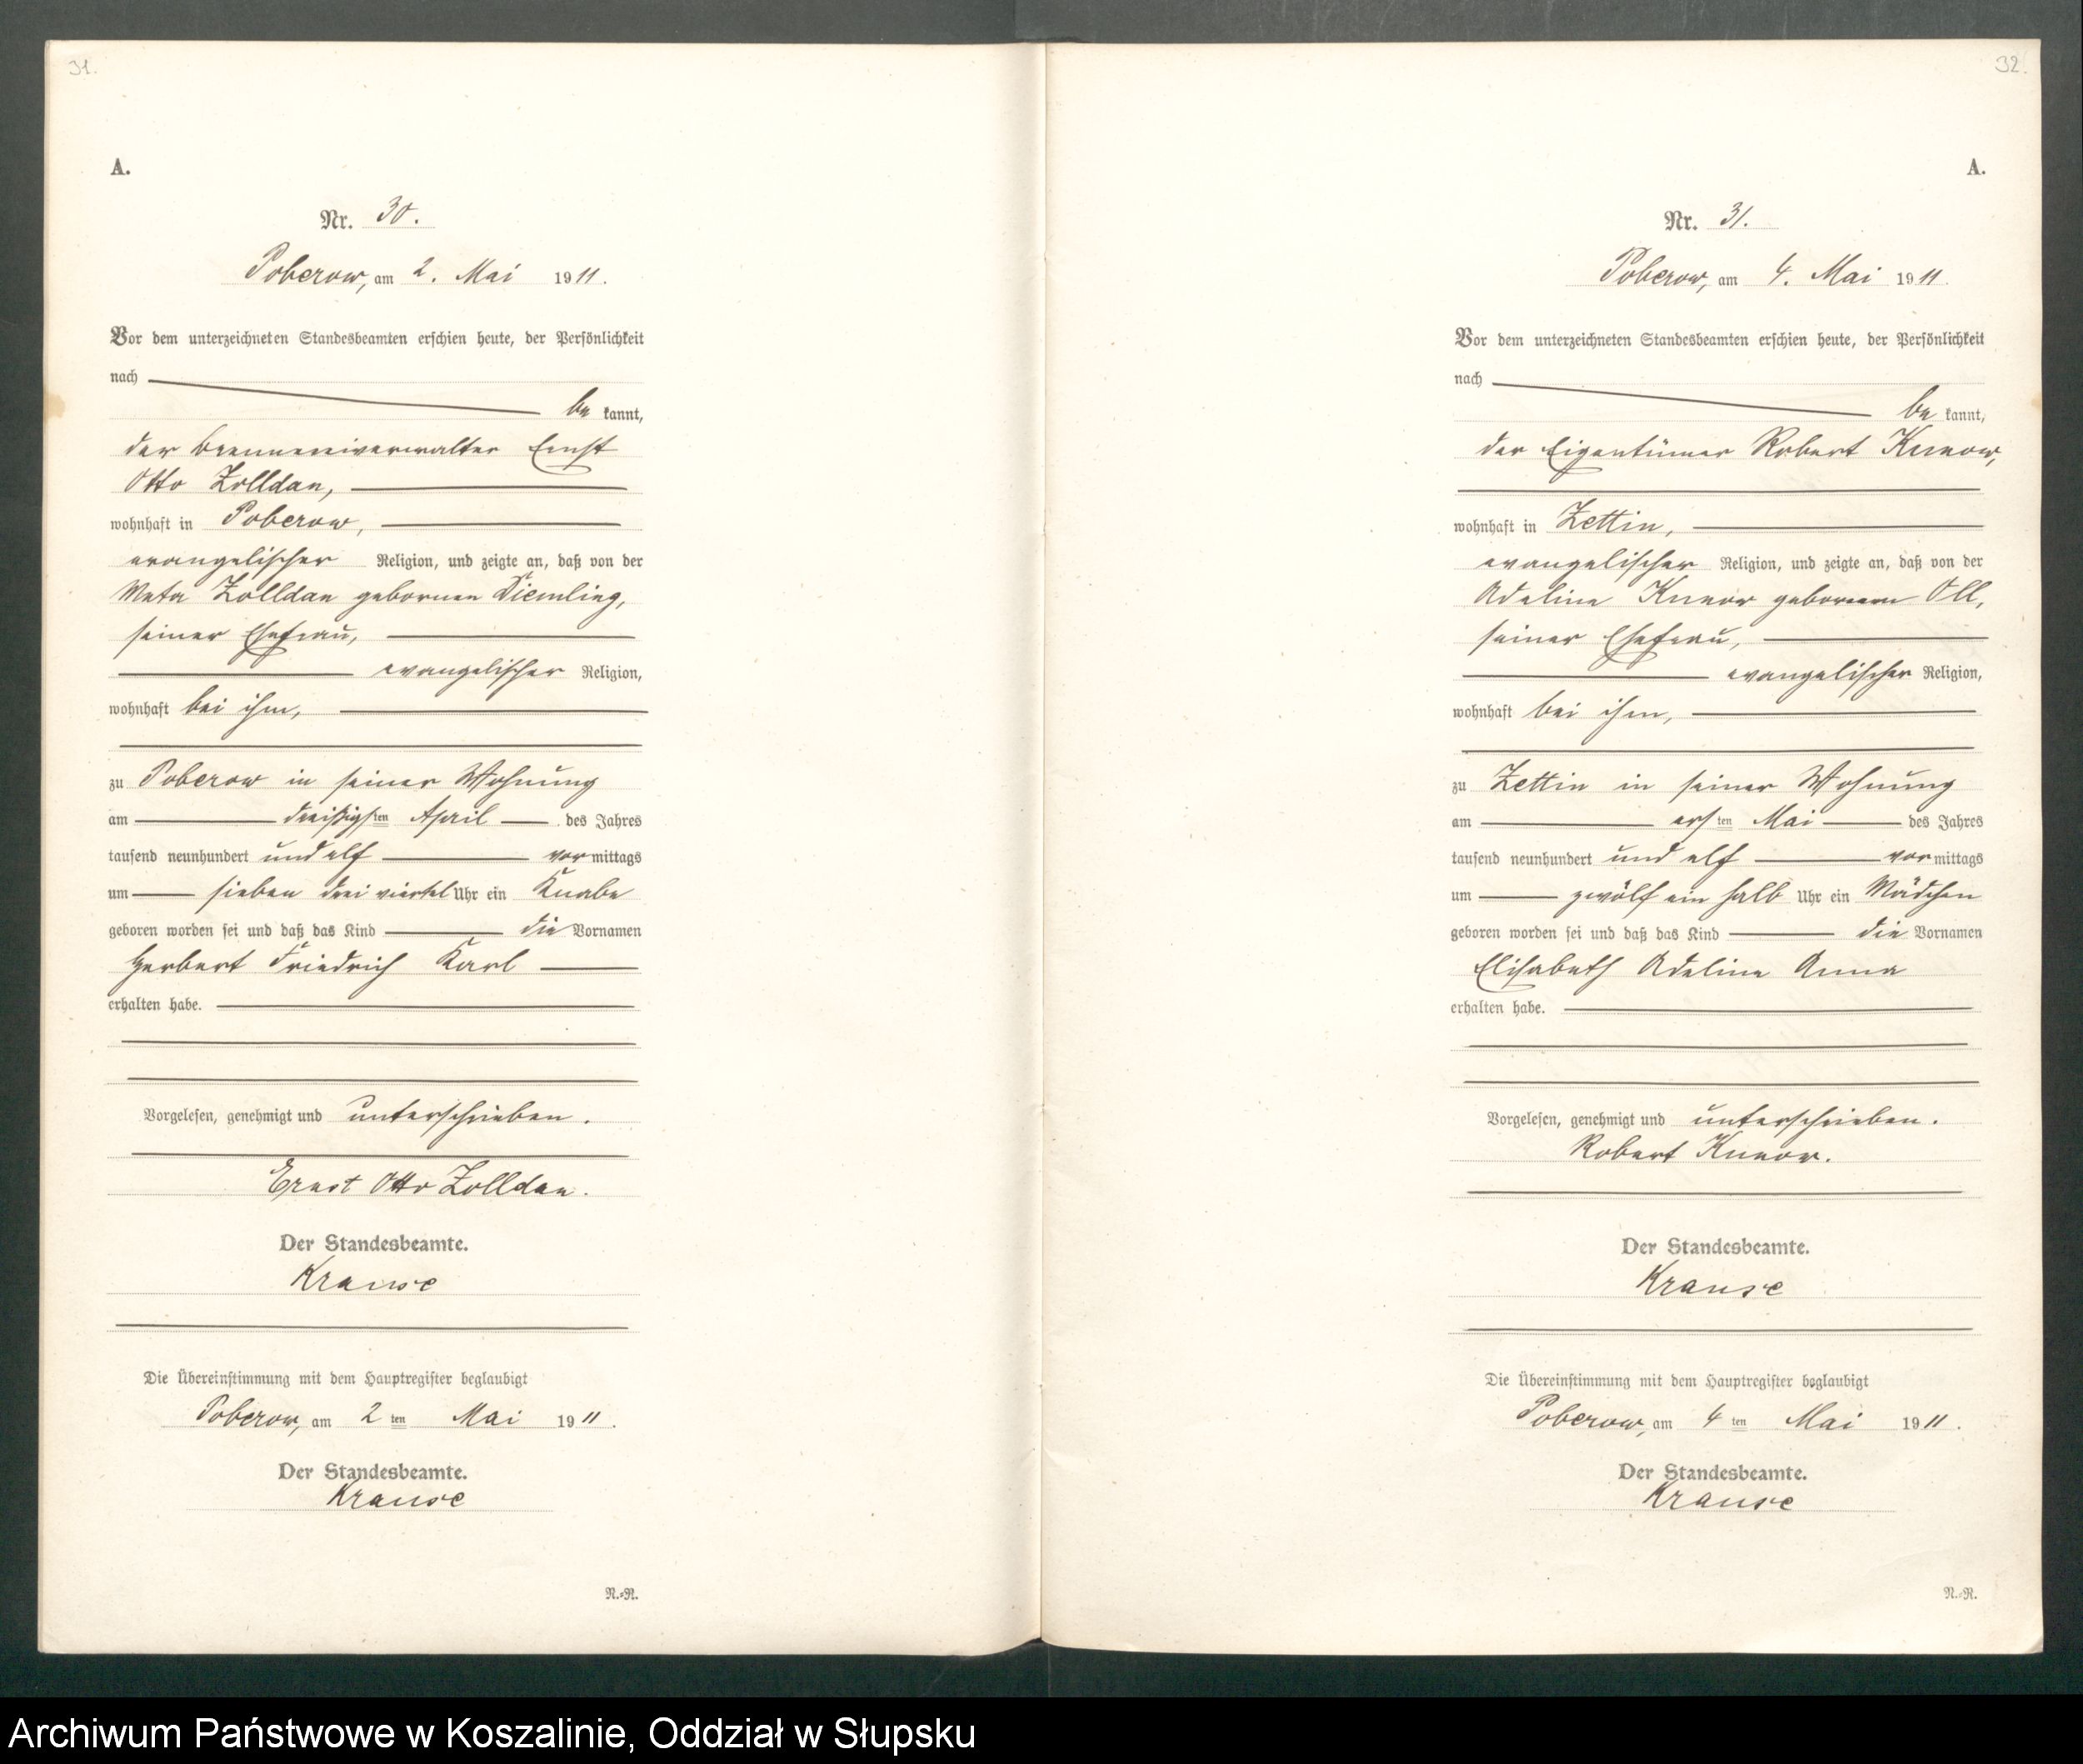 31.
A.
Nr. 30.
Poberow, am 2. Mai 1911.
Vor dem unterzeichneten Standesbeamten erschien heute, der Persönlichkeit
nach
be kannt,
der Brennereiverwalter Ernst
Otto Zolldan,
wohnhaft in Poberow,
evangelischer Religion, und zeigte an, daß von der
Meta Zolldan geborenen Diemling,
seiner Ehefrau,
evangelischer Religion,
wohnhaft bei ihm,
zu Poberow in seiner Wohnung
am dreißigsten April des Jahres
tausend neunhundert und elf vormittags
um sieben drei viertel Uhr ein Knabe
geboren worden sei und daß das Kind die Vornamen
Herbert Friedrich Karl
erhalten habe.
Vorgelesen, genehmigt und unterschrieben.
Ernst Otto Zolldan.
Der Standesbeamte.
Krause
Die Übereinstimmung mit dem Hauptregister beglaubigt
Poberow, am 2 ten Mai 1911.
Der Standesbeamte.
Krause
N.-R.
32.
A.
Nr. 31.
Poberow, am 4. Mai 1911.
Vor dem unterzeichneten Standesbeamten erschien heute, der Persönlichkeit
nach
be kannt,
der Eigentümer Robert Kunow,
wohnhaft in Zettin,
evangelischer Religion, und zeigte an, daß von der
Adeline Kunow geborenen Oll,
seiner Ehefrau,
evangelischer Religion,
wohnhaft bei ihm,
zu Zettin in seiner Wohnung
am ersten Mai des Jahres
tausend neunhundert und elf vormittags
um zwölf ein halb Uhr ein Mädchen
geboren worden sei und daß das Kind die Vornamen
Elisabeth Adeline Anna
erhalten habe.
Vorgelesen, genehmigt und unterschrieben.
Robert Kunow.
Der Standesbeamte.
Krause
Die Übereinstimmung mit dem Hauptregister beglaubigt
Poberow, am 4 ten Mai 1911.
Der Standesbeamte.
Krause
N.-R.
Archiwum Państwowe w Koszalinie, Oddział w Słupsku